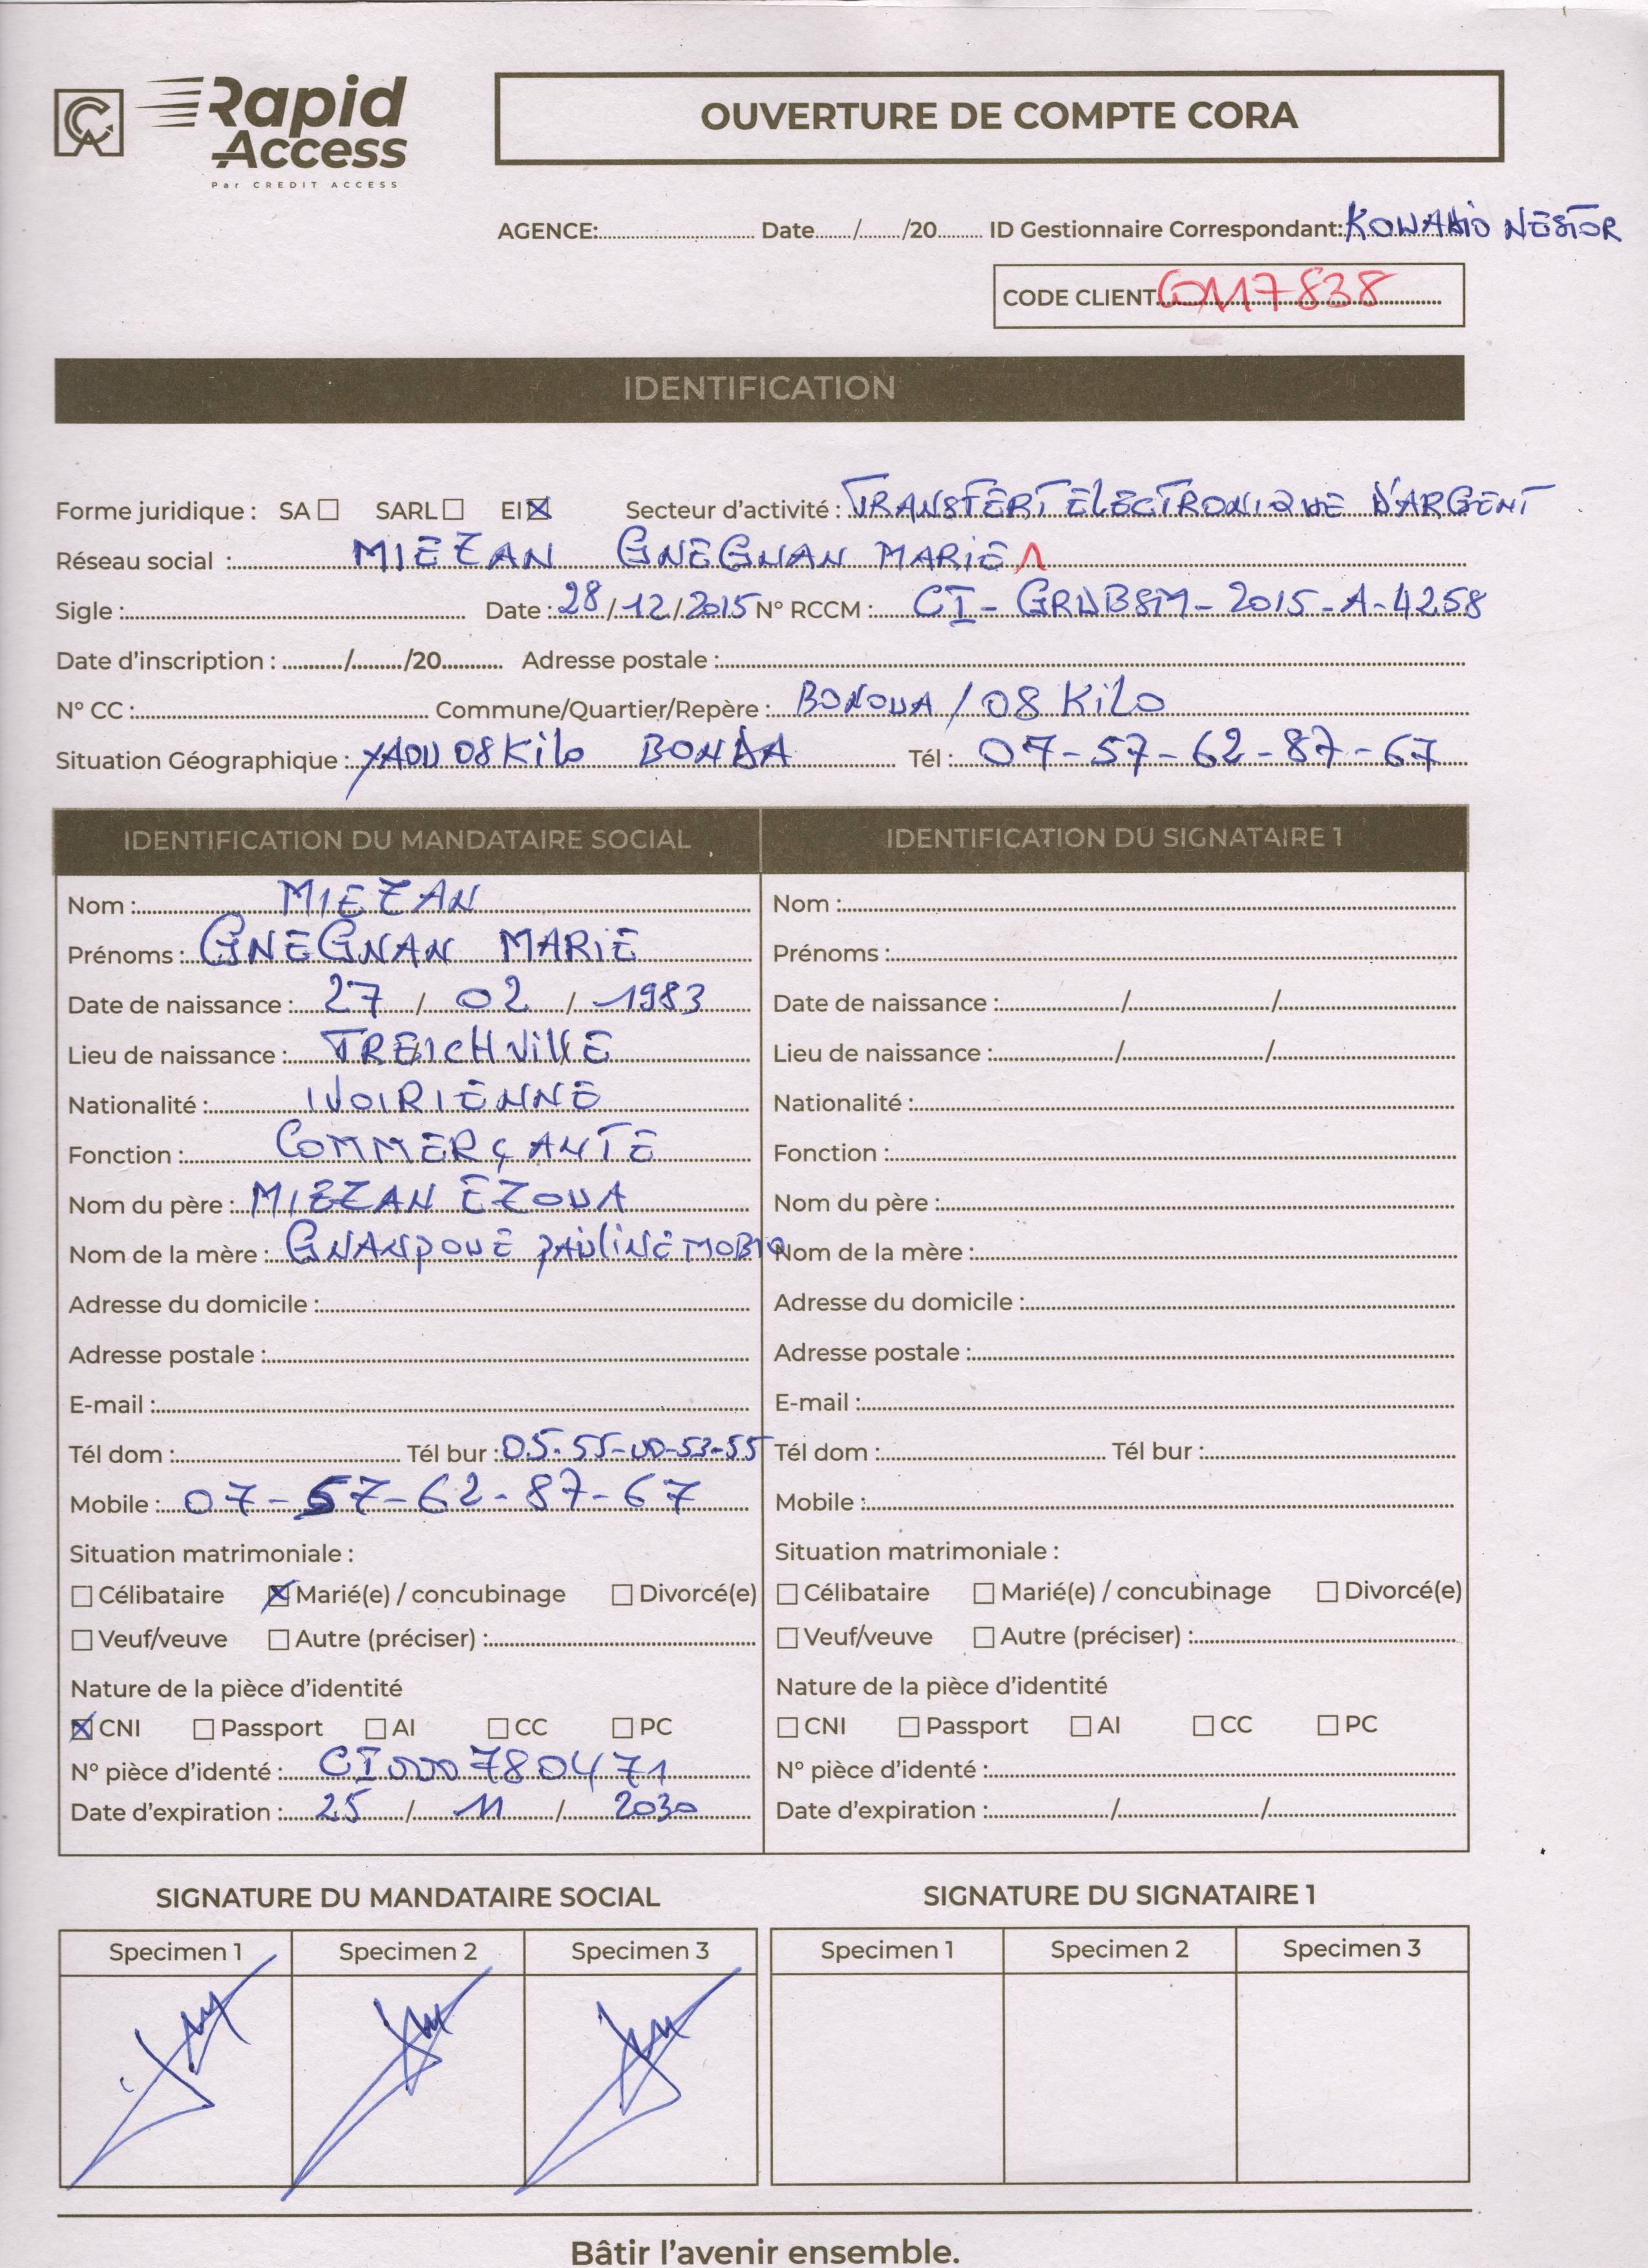 Rapid Access
Par CREDIT ACCESS
OUVERTURE DE COMPTE CORA
AGENCE:.......... Date....../....../20...... ID Gestionnaire Correspondant: NESTOR
CODE CLIENT 7838
IDENTIFICATION
Forme juridique : SA ☐ SARL ☐ EI ☒ Secteur d'activité : TRANSFERT ELECTRONIQUE D'ARGENT
Réseau social : MIEZAN GNEGNAN MARIE 1
Sigle :.......... Date : 28/12/2015 N° RCCM : CI-GRDBSM-2015-A-4258
Date d'inscription : ....../....../20...... Adresse postale :..........
N° CC :.......... Commune/Quartier/Repère : BONOUA / 08 KiLO
Situation Géographique : YAOU 08 Kilo Tél : 07-57-62-87-67
IDENTIFICATION DU MANDATAIRE SOCIAL
Nom : MIEZAN
Prénoms : GNEGNAN MARIE
Date de naissance : 27 / 02 / 1983
Lieu de naissance : TREICHVILLE
Nationalité : IVOIRIENNE
Fonction : COMMERÇANTE
Nom du père : MIEZAN EZOUA
Nom de la mère : GNANPOUE PAULINE MOBIO
Adresse du domicile :..........
Adresse postale :..........
E-mail :..........
Tél dom :.......... Tél bur : 05-55-00-53-55
Mobile : 07-57-62-87-67
Situation matrimoniale :
☐ Célibataire ☒ Marié(e) / concubinage ☐ Divorcé(e)
☐ Veuf/veuve ☐ Autre (préciser) :..........
Nature de la pièce d'identité
☒ CNI ☐ Passport ☐ AI ☐ CC ☐ PC
N° pièce d'identé : CI000780471
Date d'expiration : 25 / 11 / 2030
IDENTIFICATION DU SIGNATAIRE 1
Nom :..........
Prénoms :..........
Date de naissance :........../........../..........
Lieu de naissance :........../........../..........
Nationalité :..........
Fonction :..........
Nom du père :..........
Nom de la mère :..........
Adresse du domicile :..........
Adresse postale :..........
E-mail :..........
Tél dom :.......... Tél bur :..........
Mobile :..........
Situation matrimoniale :
☐ Célibataire ☐ Marié(e) / concubinage ☐ Divorcé(e)
☐ Veuf/veuve ☐ Autre (préciser) :..........
Nature de la pièce d'identité
☐ CNI ☐ Passport ☐ AI ☐ CC ☐ PC
N° pièce d'identé :..........
Date d'expiration :........../........../..........
SIGNATURE DU MANDATAIRE SOCIAL
Specimen 1 Specimen 2 Specimen 3
SIGNATURE DU SIGNATAIRE 1
Specimen 1 Specimen 2 Specimen 3
Bâtir l'avenir ensemble.